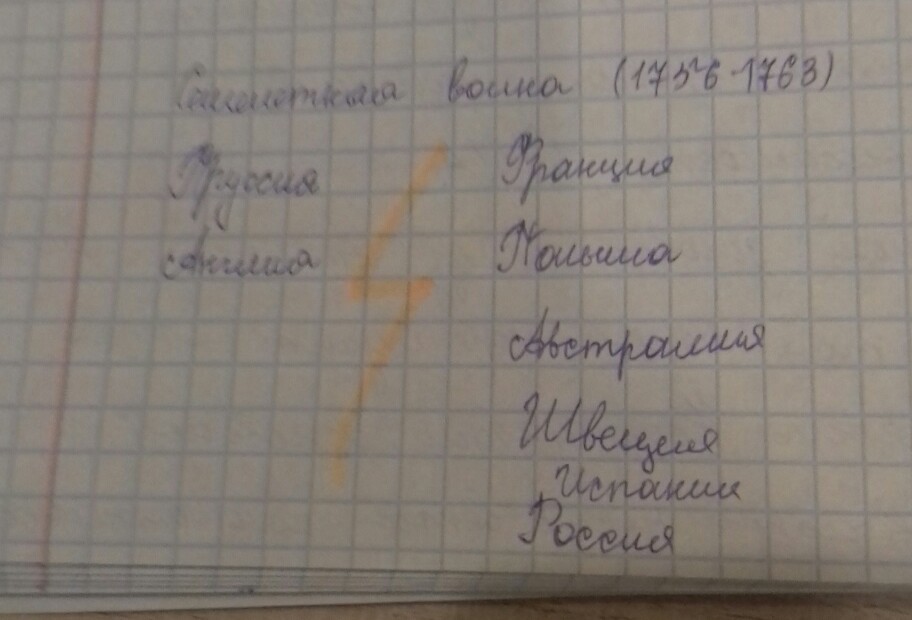 Семилетняя война (1756-1763)
Пруссия Франция
Англия Польша
Австралия
Швеция
Испания
Россия